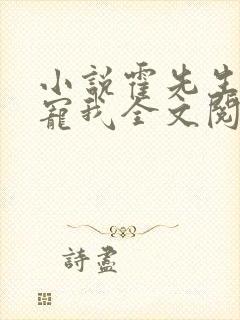 小説霍先生
寵我全文閱
詩盡